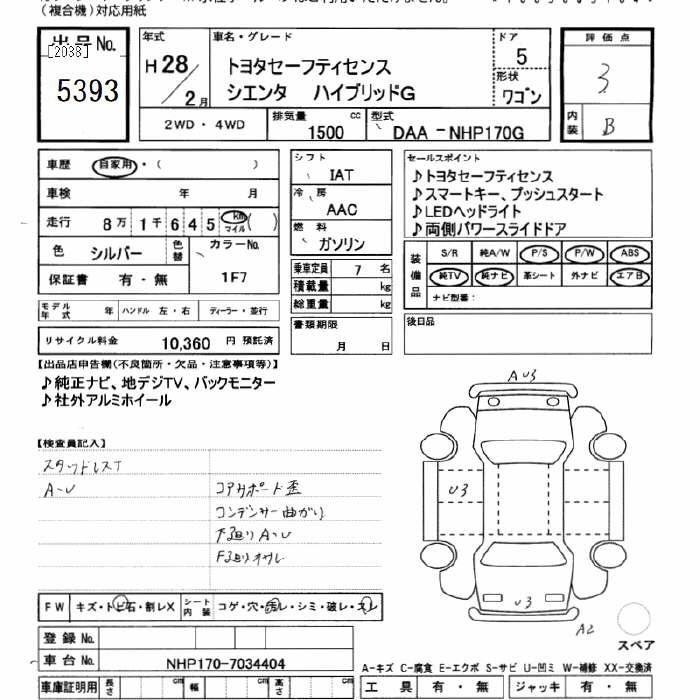 (複合機)対応用紙
出品No.
[2038]
5393
年式
H28/2月
車名・グレード
トヨタセーフティセンス
シエンタ ハイブリッドG
ドア
5
形状
ワゴン
評価点
3
内装
B
2WD・4WD
排気量
1500
cc
型式
DAA-NHP170G
車歴 自家用・( )
車検 年 月
走行 8万1千645 km マイル ( )
色 シルバー 色替 カラーNo.
1F7
保証書 有・無
シフト
IAT
冷房
AAC
燃料
ガソリン
乗車定員 7 名
積載量 kg
総重量 kg
セールスポイント
♪トヨタセーフティセンス
♪スマートキー、プッシュスタート
♪LEDヘッドライト
♪両側パワースライドドア
装備品
S/R 純A/W P/S P/W ABS
純TV 純ナビ 革シート 外ナビ エアB
ナビ型番:
モデル年式 年 ハンドル 左・右 ディーラー・並行
リサイクル料金 10,360 円 預託済
書類期限
月 日
後日品
【出品店申告欄(不良箇所・欠品・注意事項等)】
♪純正ナビ、地デジTV、バックモニター
♪社外アルミホイール
【検査員記入】
スタッドレスT
A-U
コアサポート歪
コンデンサー曲がり
下廻りA-U
AU3
U3
U3
A2
スペア
FW キズ・トビ石・割レX シート内装 コゲ・穴・汚レ・シミ・破レ・スレ
登録No.
車台No. NHP170-7034404
車庫証明用 長さ cm 幅 cm 高さ cm
A-キズ C-腐食 E-エクボ S-サビ U-凹ミ W-補修 XX-交換済
工具 有・無 ジャッキ 有・無